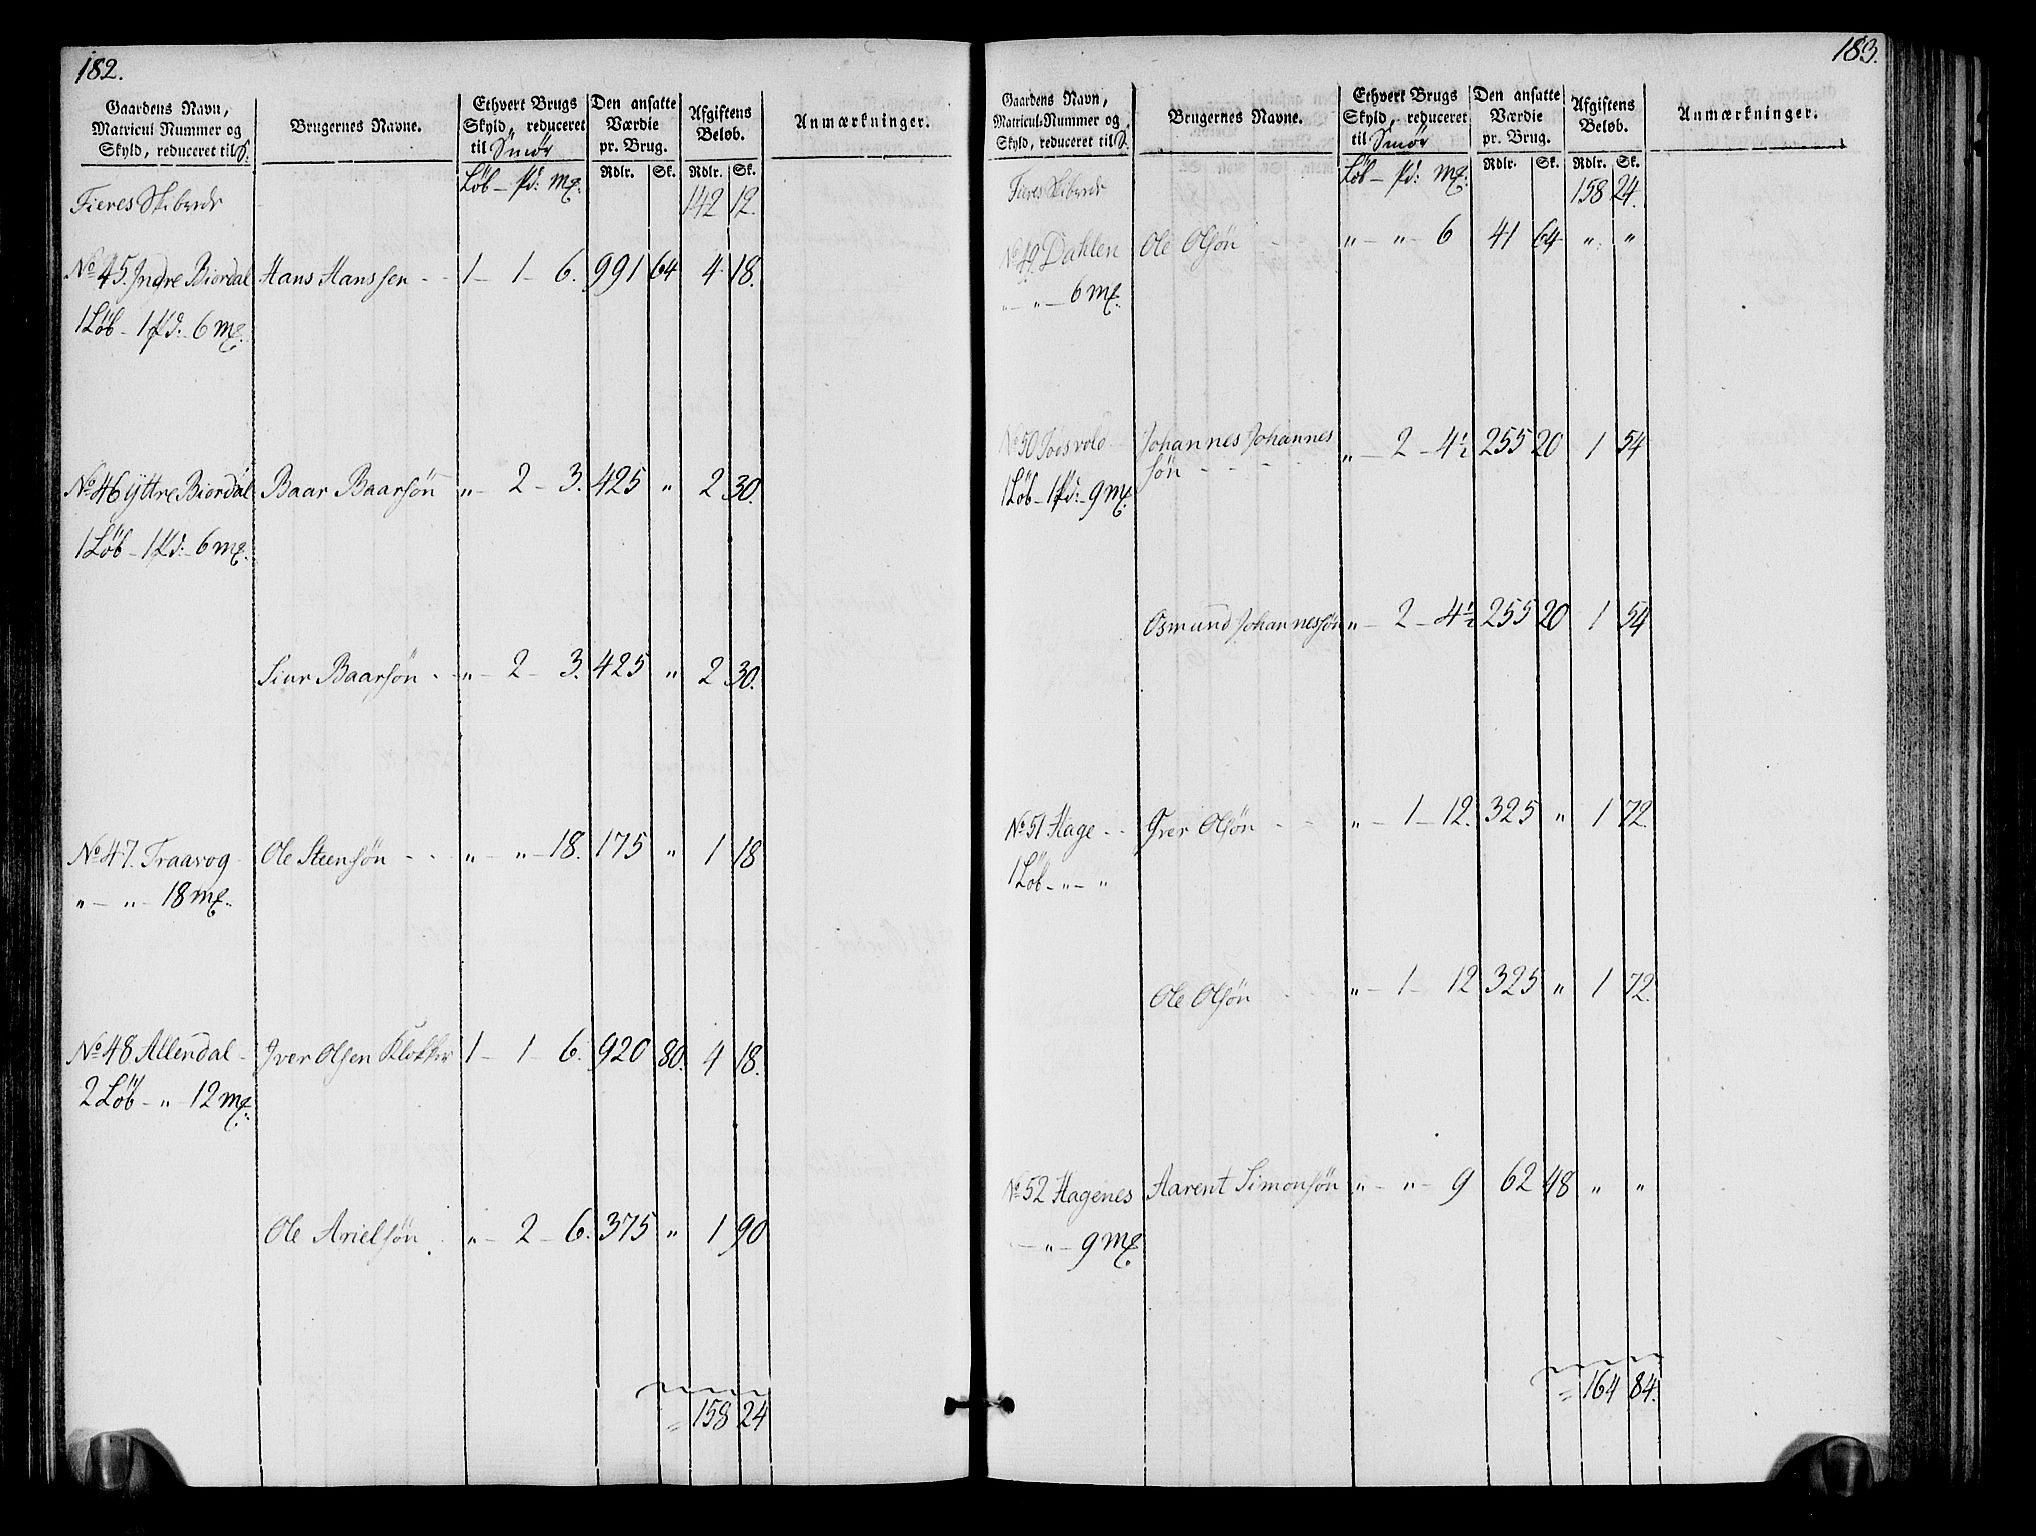 182.
Gaardens Navn, Matricul-Nummer og Skyld, reduceret til S. | Brugernes Navne. | Ethvert Brugs Skyld, reduceret til Smør | Den ansatte Værdie pr. Brug. | Afgiftens Beløb. | Anmærkninger.
Løb - Pd: Mk: | Rdlr. | Sk. | Rdlr. | Sk.
Fieres Skibrede 142 12.
No 45. Indre Biordal Hans Hanssen - - 1 - 1 - 6. 991 64 4 18.
1 Løb - 1 Pd: - 6 Mk:
No 46 Yttre Biordal Baar Baarsøn „ - 2 - 3. 425 „ 2 30.
1 Løb - 1 Pd: - 6 Mk:
Siur Baarsøn - „ - 2 - 3. 425 „ 2 30.
No 47. Traavog - Ole Steensøn - - „ - „ - 18. 175 „ 1 18
„ - „ - 18 Mk:
No 48 Allendal - Iver Olsen Klokker 1 - 1 - 6. 920 80. 4 18.
2 Løb - „ - 12 Mk:
Ole Arielsøn „ - 2 - 6. 375 „ 1 90
158 24
183.
Gaardens Navn, Matricul-Nummer og Skyld, reduceret til S. | Brugernes Navne. | Ethvert Brugs Skyld, reduceret til Smør | Den ansatte Værdie pr. Brug. | Afgiftens Beløb. | Anmærkninger.
Løb - Pd: Mk: | Rdlr. | Sk. | Rdlr. | Sk.
Fieres Skibrede 158 24.
No 49. Dahlen Ole Olsøn - - „ - „ - 6 41 64 „ „
„ - „ - 6 Mk:
No 50 Johannes Johannes
søn - - - - „ - 2 - 4½ 255 20 1 54
1 Løb - 1 Pd: - 9 Mk:
Osmund Johannessøn „ - 2 - 4½ 255 20 1 54
No 51 Hage - - Iver Olsøn - - „ - 1 - 12. 325 „ 1 72.
1 Løb - „ - „
Ole Olsøn - - „ - 1 - 12 325 „ 1 72.
No 52 Hagenes Aarent Simonsøn „ - „ - 9 62 48 „ „
- „ - 9 Mk:
164 84.